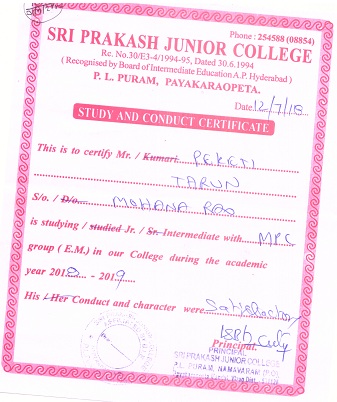 Phone : 254588 (08854)
SRI PRAKASH JUNIOR COLLEGE
Rc. No.30/E3-4/1994-95, Dated 30.6.1994
( Recognised by Board of Intermediate Education A.P. Hyderabad )
P. L. PURAM, PAYAKARAOPETA.
Date 12/7/18
STUDY AND CONDUCT CERTIFICATE
This is to certify Mr. / Kumari. PEKETI
TARUN
S/o. / D/o. MOHANA RAO
is studying / studied Jr. / Sr. Intermediate with MPC
group ( E.M.) in our College during the academic
year 2018 - 2019
His / Her Conduct and character were Satisfactory
Principal.
PRINCIPAL
SRI PRAKASH JUNIOR COLLEGE
P.L. PURAM, NAMAVARAM (P.O)